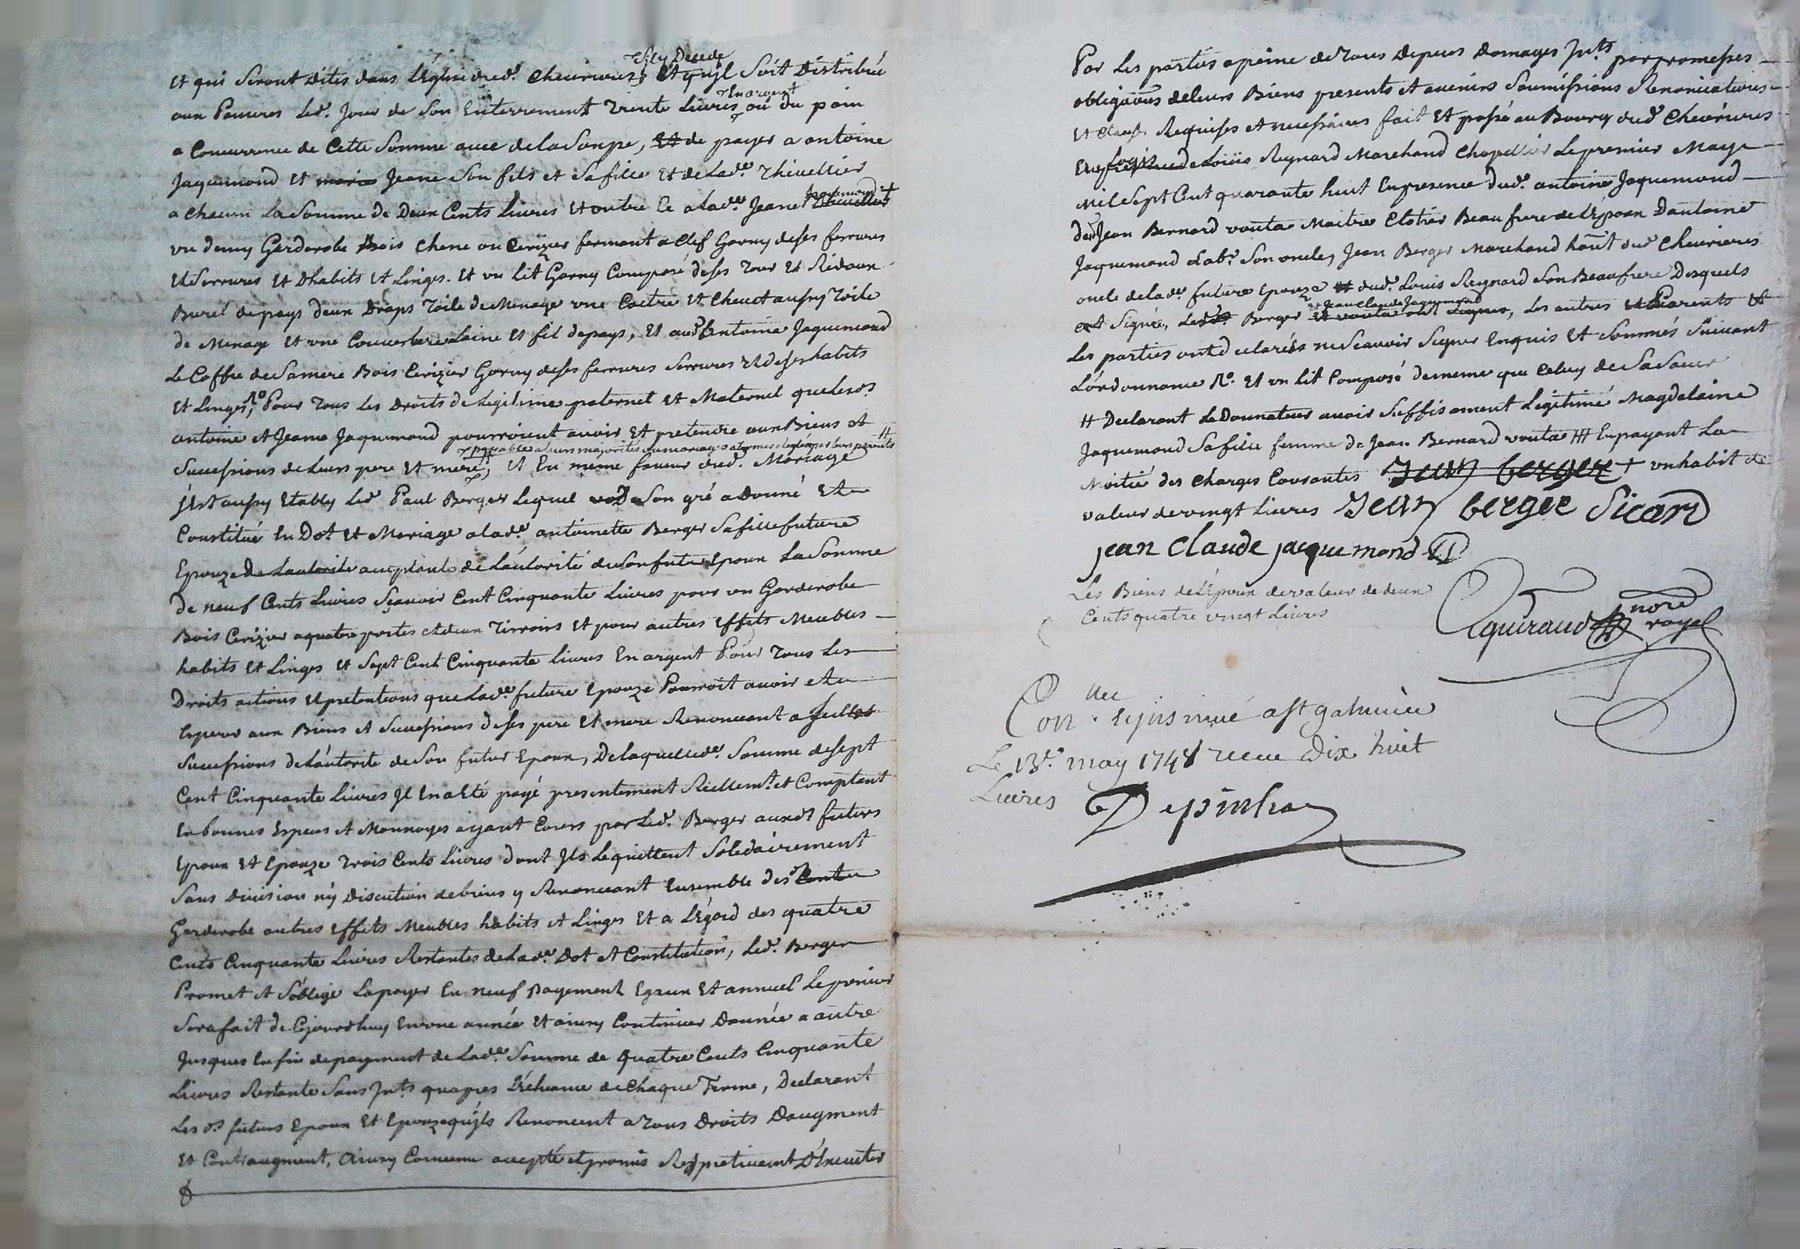 sily Decede
Et qui seront dites dans Leglise dud. Chevrieres, Et qu'jl soit Distribué
En argent
aux Pauvres Led. Jour de son Enterrement trente Livres ou du pain
a Concurrence de Cette Somme avec de la Soupe, Et de payer a antoine
Jaquemond et marie Jeane son fils et sa fille et de Lad.e thivellier
Jaquemond
a chacun La Somme de Deux Cents Livres Et outre Ce a lad.e Jeane thivellier
un demy Garderobe Bois chene ou Cerizier fermant a Clef Garny de ses ferrures
et Serrures Et Dhabits Et Linges. Et un Lit Garny Composé de ses tour Et Rideaux
Burel de pays deux Draps toile de Menage une Coetre Et Chevet aussy toile
de Menage Et une Couverture Laine Et fil de pays, Et aud. Antoine Jaquemond
Le Coffre de Sa mere Bois Cerizier Garny de ses ferrures Serrures et de ses habits
Et Linges, R.o Pour tous Les Droits de Legitime paternel Et Maternel que Lesd.s
antoine Et Jeane Jaquemond pourroient avoir Et pretendre aux Biens Et
payables a leurs majorités ou mariages
Successions de Leurs pere Et mere, Et En meme faveur dud. Mariage
s'est aussy Etably Led. Paul Berger Lequel de Son gré a Donné Et
Constitué En Dot Et Mariage a lad.e antoinette Berger Sa fille future
Epouze de Lautorité acceptante de Lautorité de Son futur Epoux La Somme
De neuf Cents Livres Sçavoir Cent Cinquante Livres pour un Garderobe
Bois Cerizier a quatre portes et deux tirroirs Et pour autres Effets Meubles
habits Et Linges Et Sept Cent Cinquante Livres En argent Pour tous Les
Droits actions Et pretentions que Lad.e future Epouze Pourroit avoir Et
Esperer aux Biens Et Successions de ses pere Et mere Renonceant a
Successions de Lautorité de Son futur Epoux, De laquelle d. Somme de Sept
Cent Cinquante Livres Jl En a Eté payé presentement Réellem.t et Comptant
En bonnes Especes Et Monnoyes ayant Cours par Led. Berger auxd.s futurs
Epoux Et Epouze trois Cents Livres dont Jls Le quittent Solidairement
Sans division ny Discution de biens y Renonceant Ensemble des
Garderobe autres Effets Meubles habits Et Linges Et a Légard des quatre
Cents Cinquante Livres Restantes de Lad.e Dot Et Constitution, Led. Berger
Promet Et S'oblige La payer En neuf Payement Egaux Et annuel Le premier
Sera fait de Cejourdhuy En une année Et ainsy Continuer Dannée a autre
Jusques En fin de payement de Lad.e Somme de Quatre Cents Cinquante
Livres Restante Sans Jnt.s quapres L'échéance de Chaque Terme, Declarant
Les d.s futurs Epoux Et Epouze quijls Renoncent a tous Droits Daugment
Et Contraugment, ainsy Convenu accepté Et promis Respectivement D'Executer
Par Les parties a peine de tous Depens Domages Jnt.s par promesses
obligations de leurs Biens presents Et avenirs Soumissions Renonciations
Et Clauses Requises Et necessaires fait Et passé au Bourg dud. Chevrieres
de Loüis Reynard Marchand Chapellier Le premier May
Mil Sept Cent quarante huit En presence dud. antoine Jaquemond
de Jean Bernard vouta Maitre Clotrier Beaufrere de L'Epoux Dantoine
Jaquemond Lab.r Son oncle, Jean Berger Marchand dud. Chevrieres
oncle de lad.e future Epouze Et dud. Louis Reynard Son Beaufrere Desquels
Jean Claude Jaquemond
ont Signés, Led. Berger Et vouta ont Signés, Les autres Et Parents Et
Les parties ont declarées ne Scavoir Signer Enquis Et Sommés Suivant
L'ordonnance R.o Et un Lit Composé de meme que Celuy de Sa Sœur
# Declarant Le Donnateur avoir Suffisament Legitimé Magdelaine
Jaquemond Sa fille femme de Jean Bernard vouta # En payant La
Moitié des Charges Courantes Jean berger + un habit de
valeur de vingt Livres Jean berger Sicard
jean claude jacquemond
Les Biens de L'Epoux de valeur de deux
Cents quatre vingt Livres
aguiraud no.re royal
Con.llé st galmier
Le 13.e may 1748 recu dix huit
Livres Depinhac